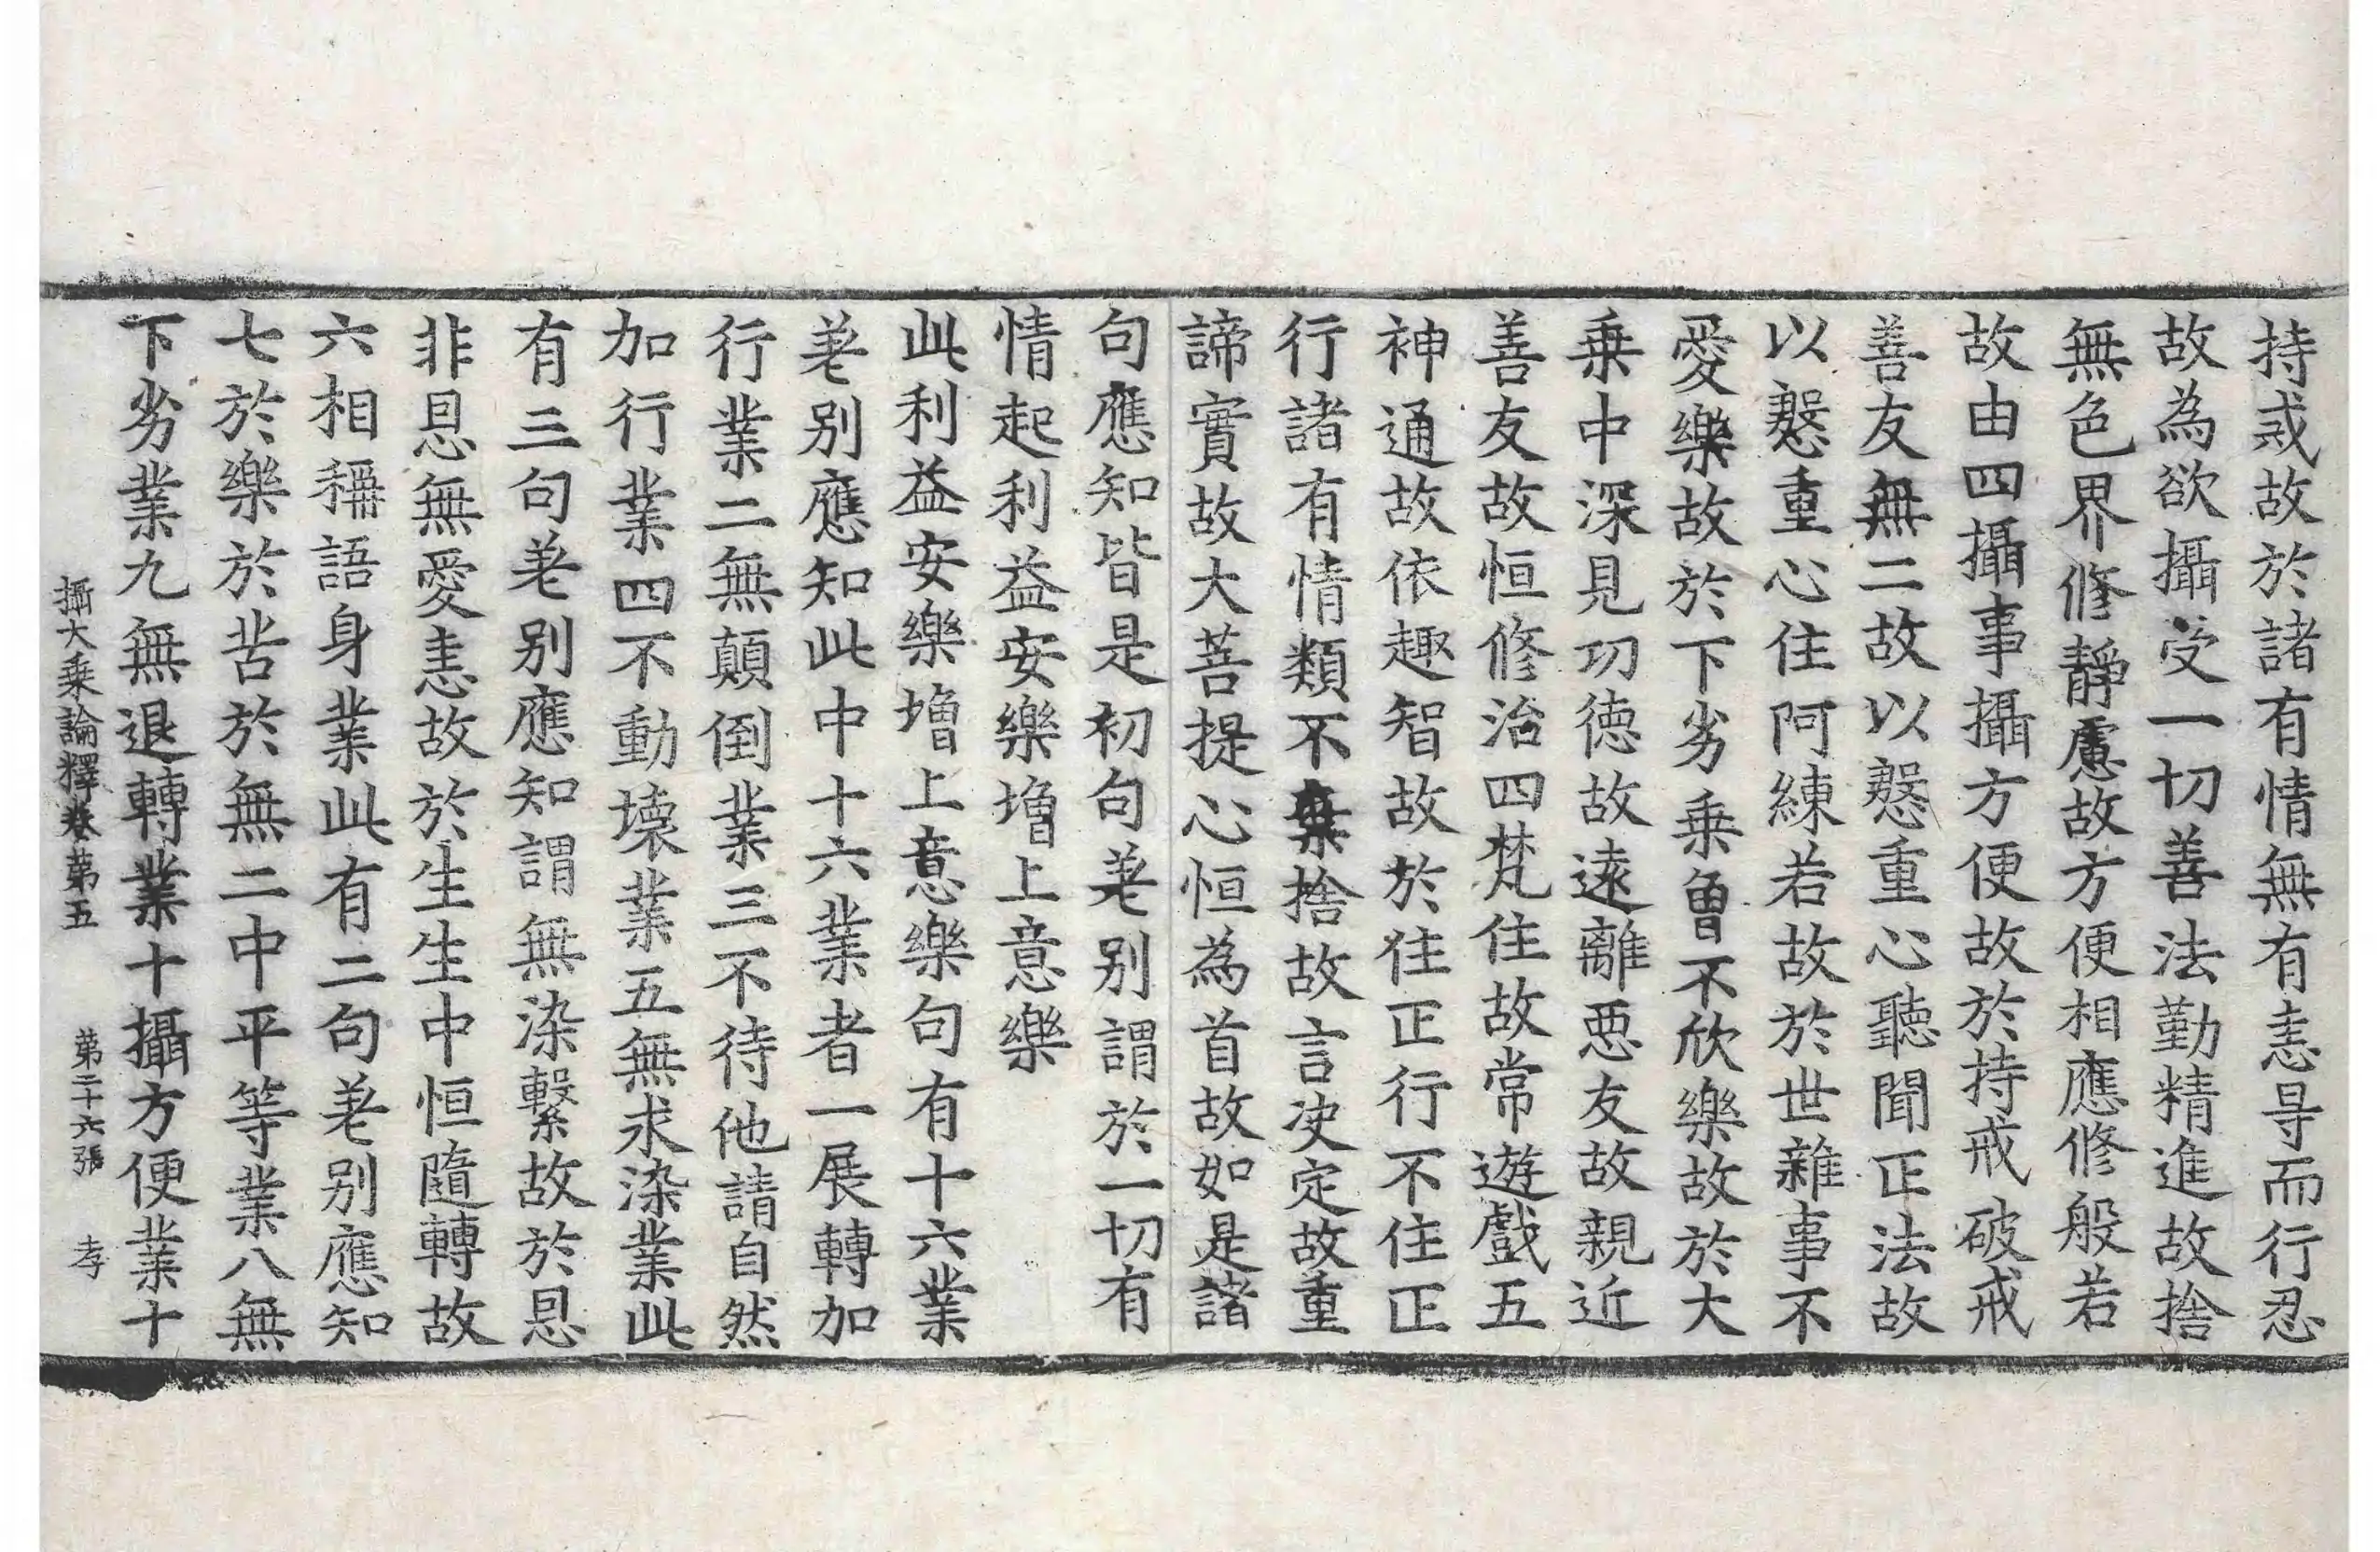 持戒故於諸有情無有恚㝵而行忍
故為欲攝受一切善法勤精進故捨
無色界修靜慮故方便相應修般若
故由四攝事攝方便故於持戒破戒
善友無二故以慇重心聽聞正法故
以慇重心住阿練若故於世雜事不
愛樂故於下劣乗曾不欣樂故於大
乗中深見功徳故遠離惡友故親近
善友故恒修治四梵住故常遊戲五
神通故依趣智故於住正行不住正
行諸有情類不棄捨故言决定故重
諦實故大菩提心恒為首故如是諸
句應知皆是初句差别謂於一切有
情起利益安樂增上意樂
此利益安樂增上意樂句有十六業
差别應知此中十六業者一展轉加
行業二無顛倒業三不待他請自然
加行業四不動壞業五無求染業此
有三句差别應知謂無染繫故於恩
非恩無愛恚故於生生中恒隨轉故
六相稱語身業此有二句差别應知
七於樂於苦於無二中平等業八無
下劣業九無退轉業十攝方便業十
攝大乗論釋卷第五 第二十六張 孝